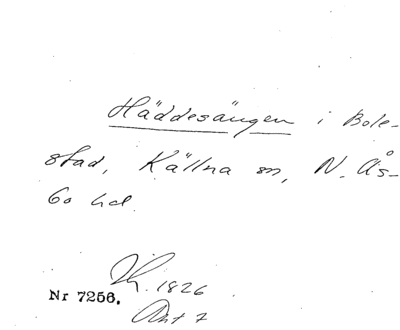 Häddesängen i Bole-
stad, Källna sn, N. Ås-
bo hd.
1826
Nr 7256.
Akt 7